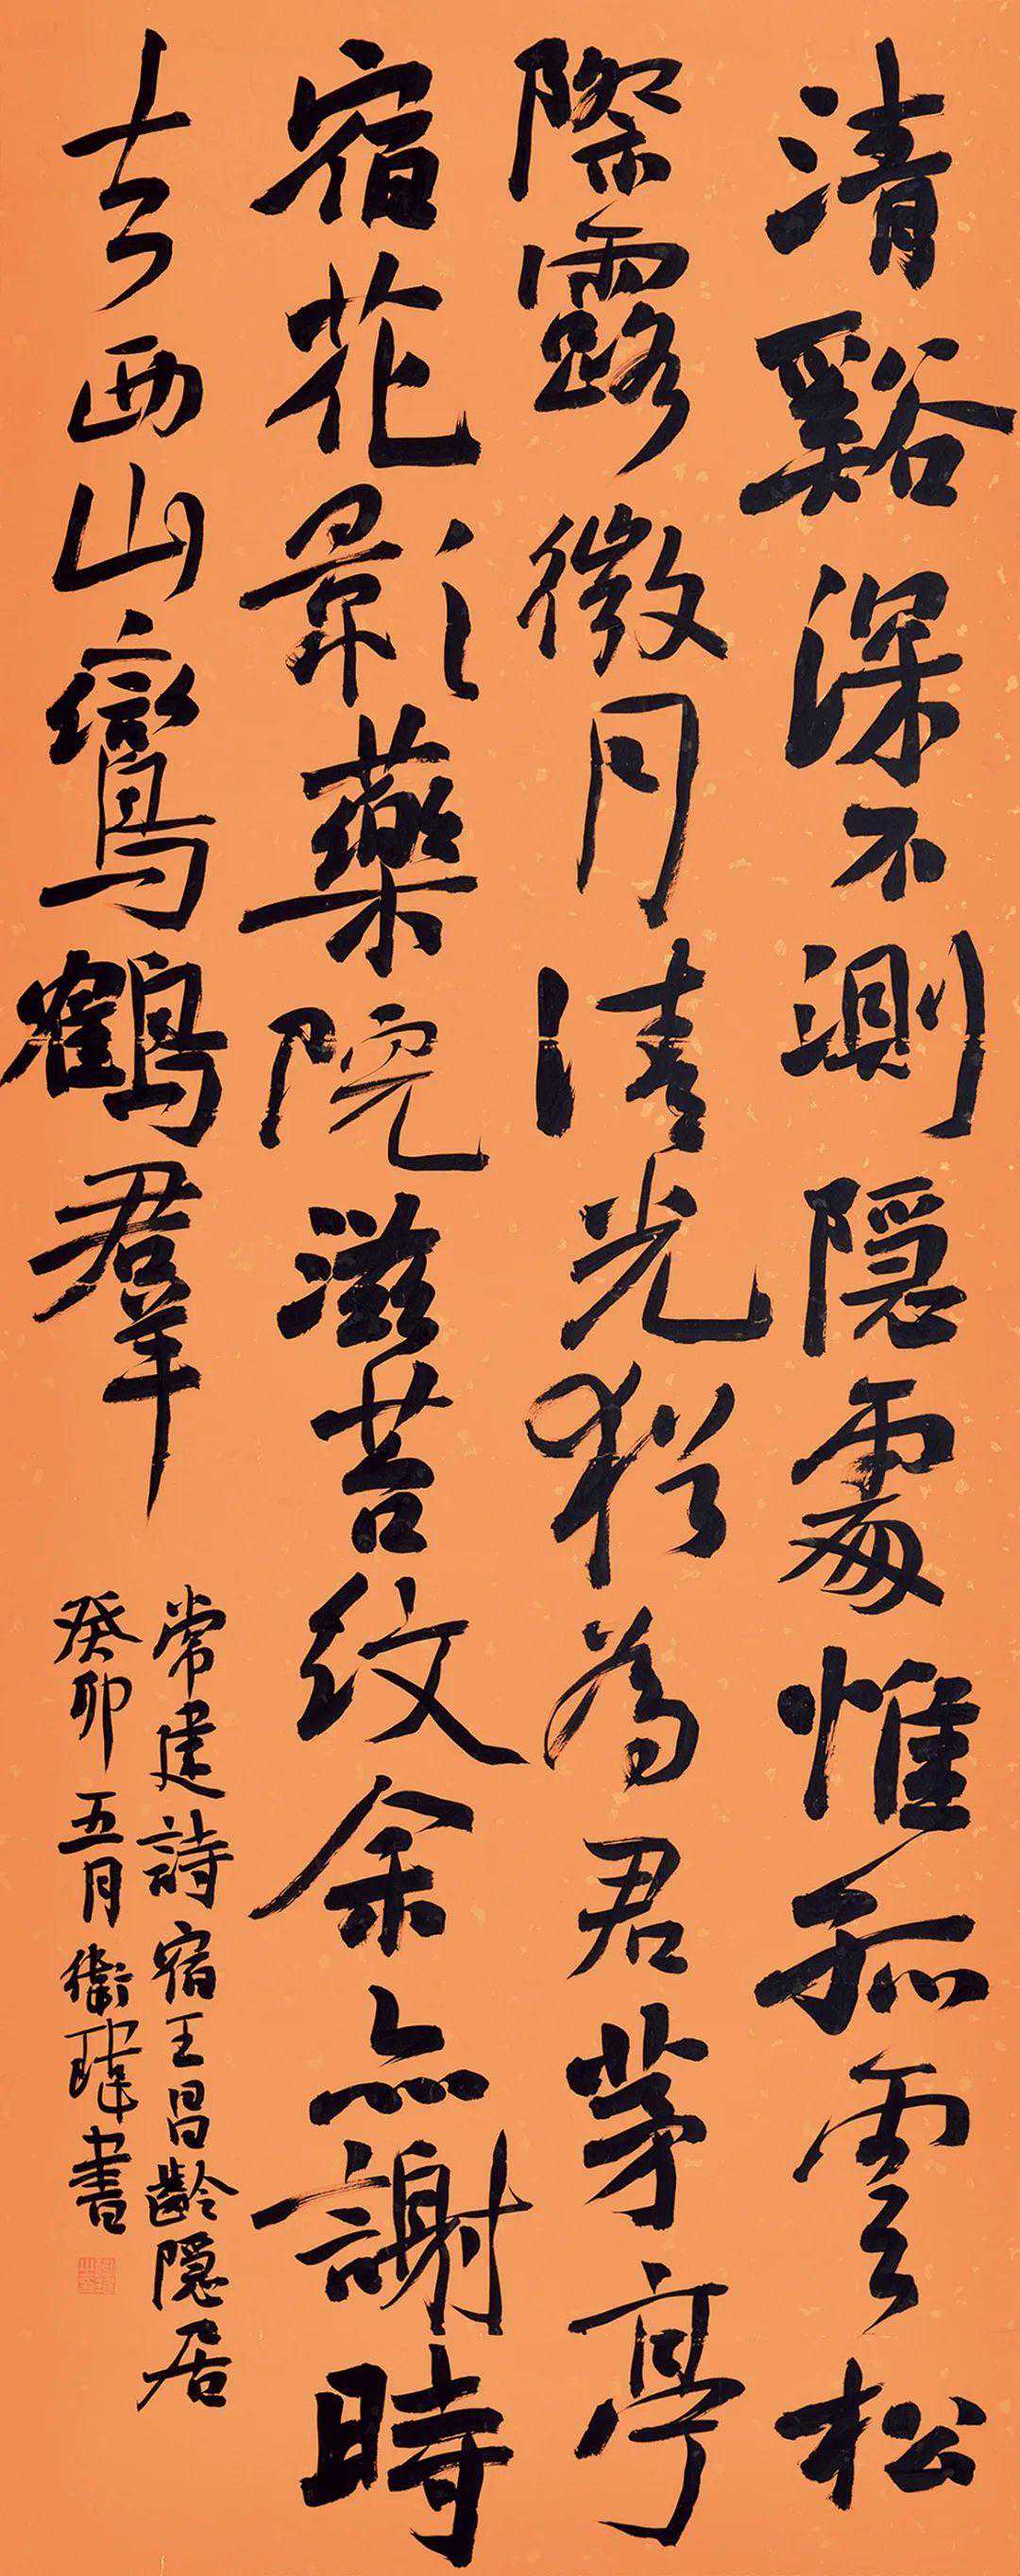 清谿深不測隱處惟孤雲松
際露微月清光猶為君茅亭
宿花影藥院滋苔紋余亦謝時
去西山鸞鶴羣
常建詩宿王昌齡隱居
癸卯五月衛瑋書